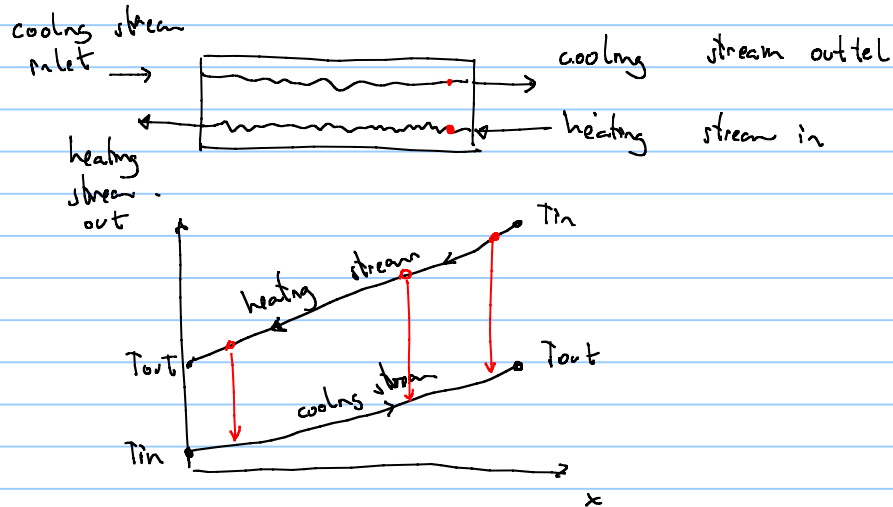 cooling stream
inlet
cooling stream outlet
heating stream in
heating
stream
out
Tin
heating stream
Tout
Tout
cooling stream
Tin
x